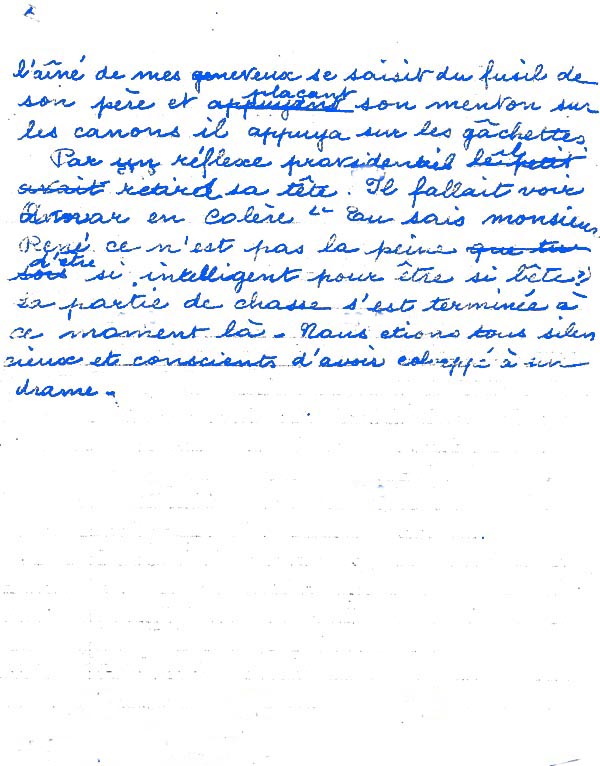 l'aîné de mes neveux se saisit du fusil de
son père et appuyant plaçant son menton sur
les canons il appuya sur les gâchettes
Par un réflexe providentiel il petit
avait retira sa tête. Il fallait voir
en colère " Tu sais monsieur
René ce n'est pas la peine que tu
sois d'être si intelligent pour être si bête ?
La partie de chasse s'est terminée à
ce moment là - Nous etions tous silen
cieux et conscients d'avoir échappé à un
drame -